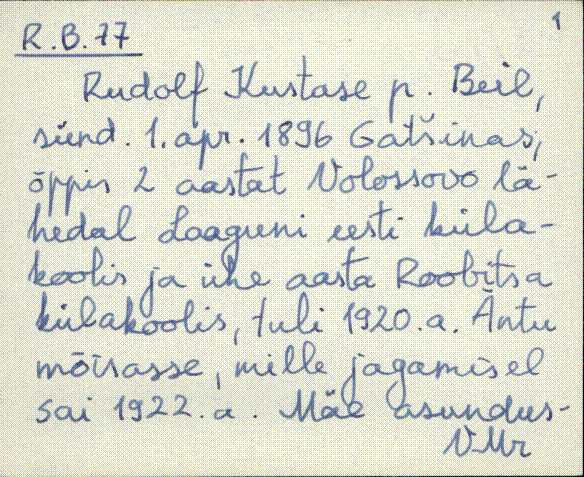 1
R.B.77
Rudolf Kustase p. Beil,
sünd. 1. apr. 1896 Gatšinas,
õppis 2 aastat Volossovo lä-
hedal Laaguni eesti küla-
koolis ja ühe aasta Roobitsa
külakoolis, tuli 1920.a. Äntu
mõisasse, mille jagamisel
sai 1922.a. Mäe asundus-
VMr